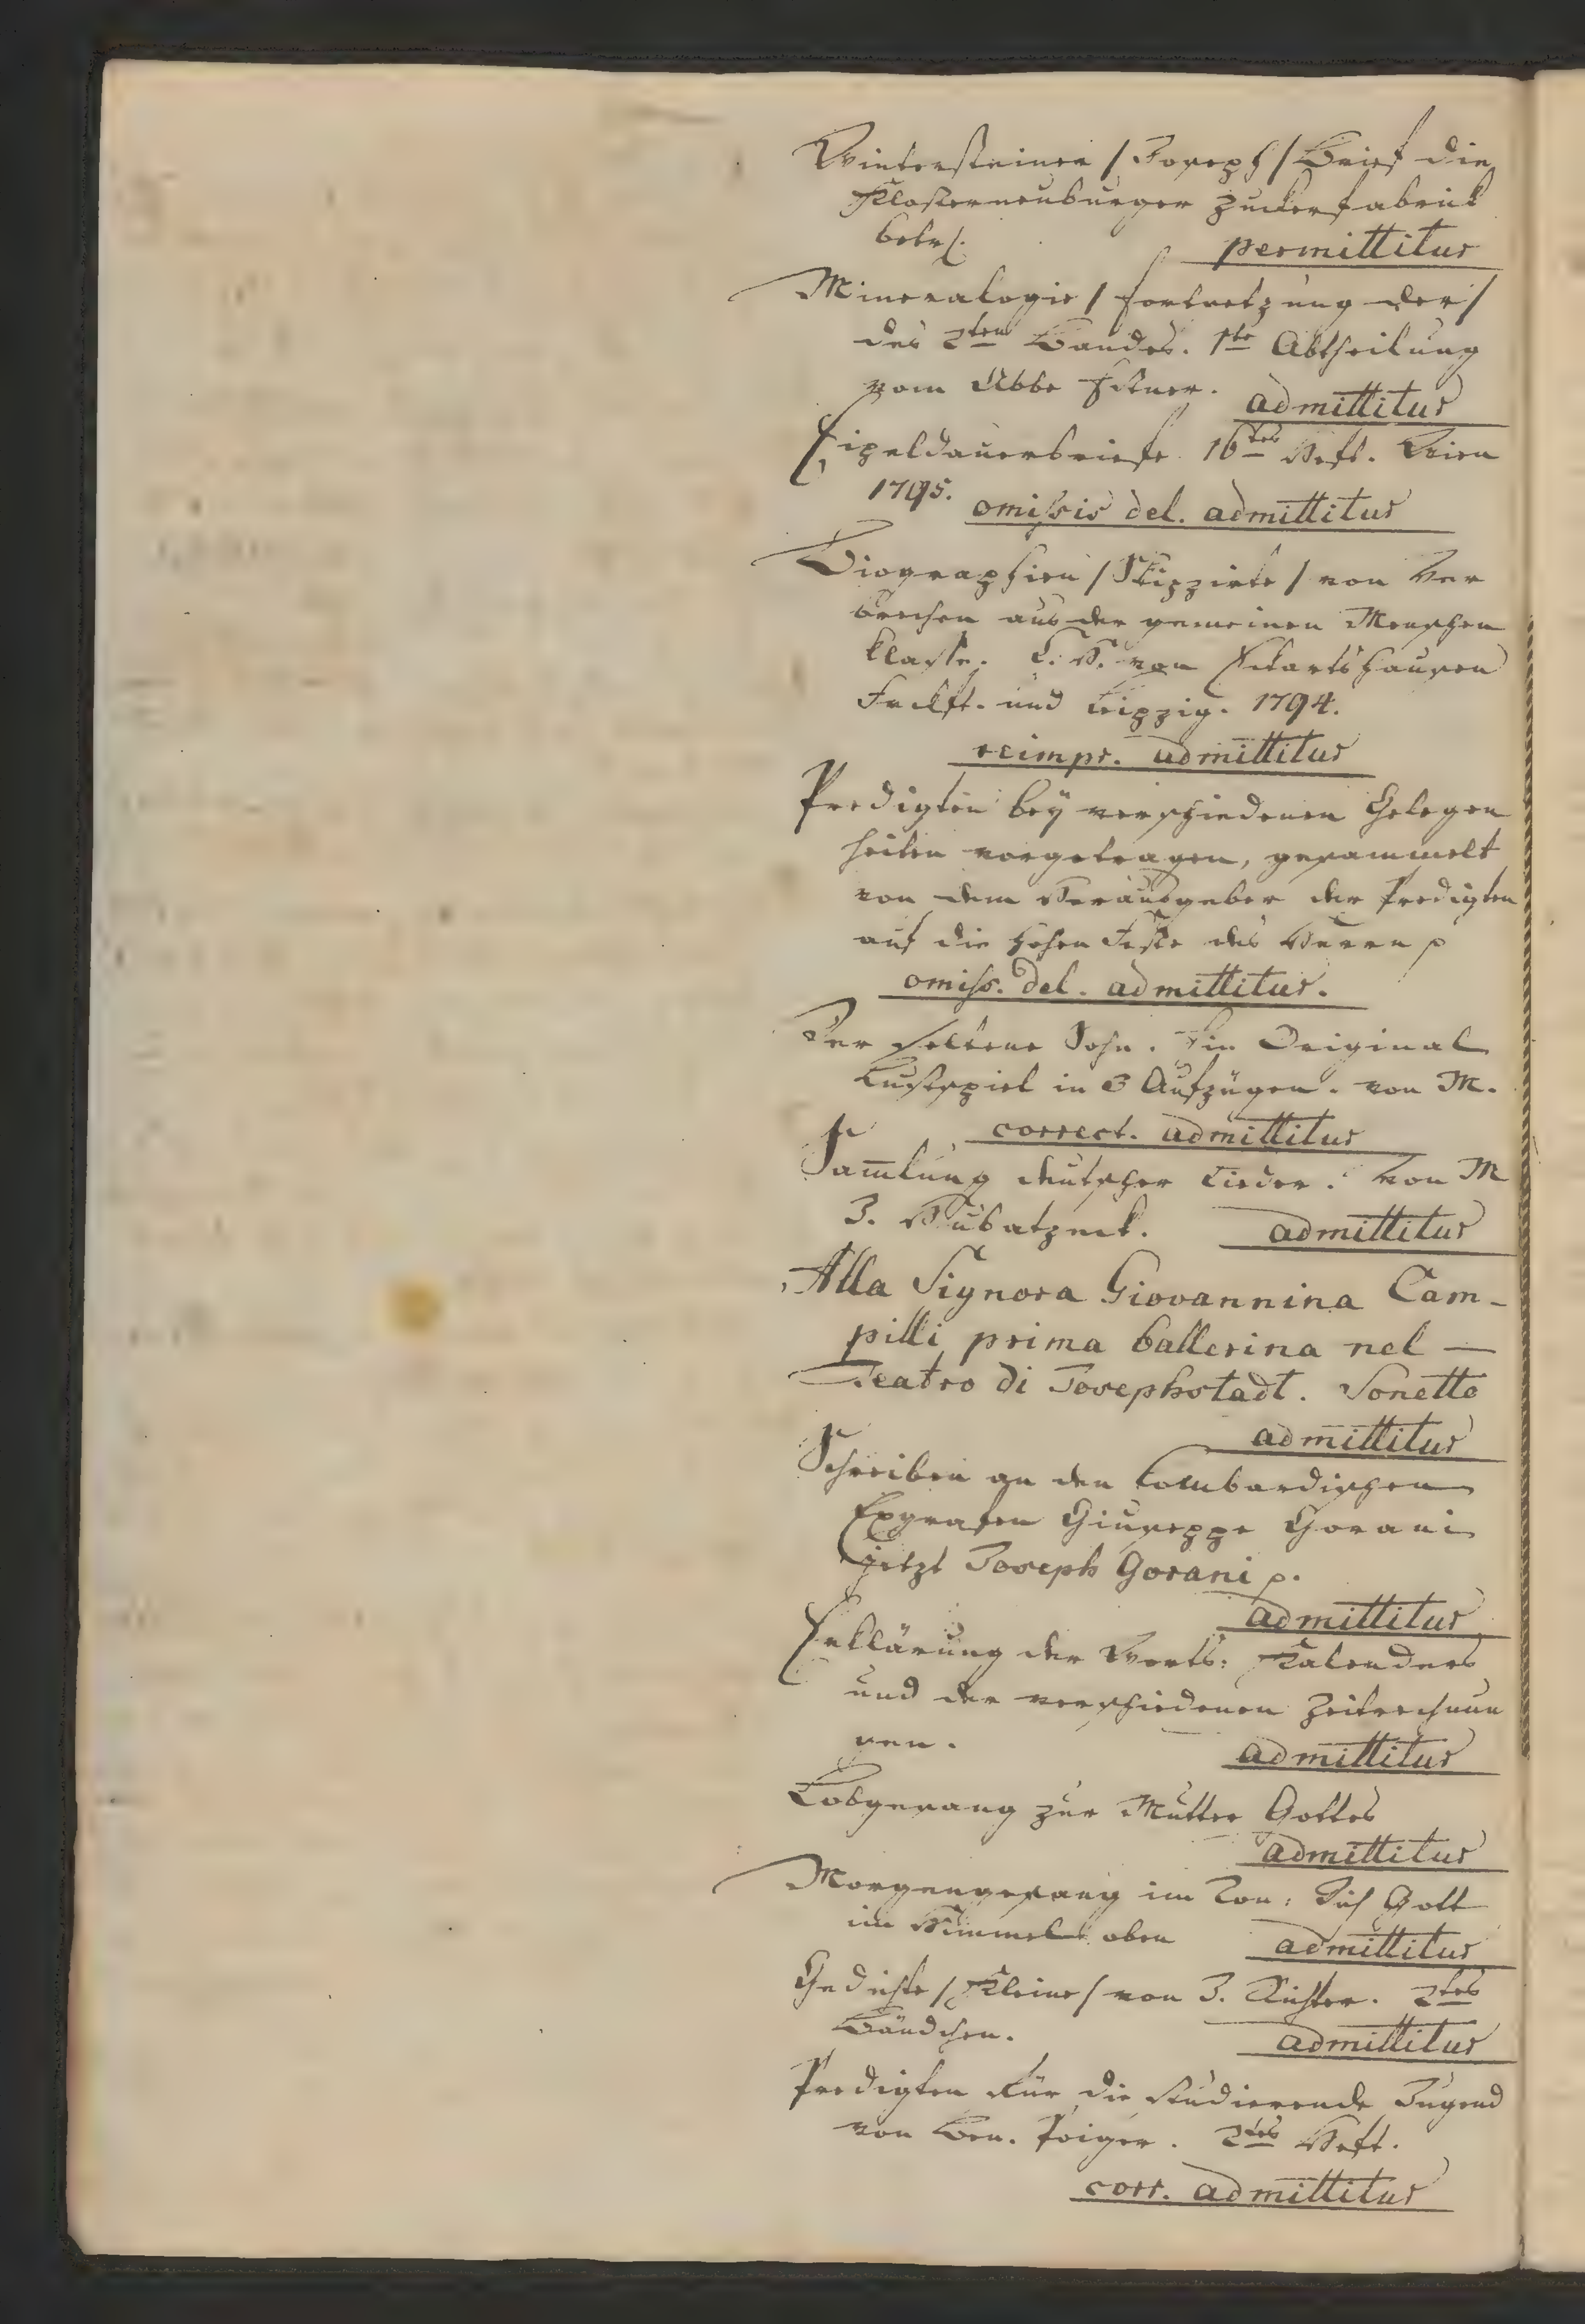 Wintersteiner / Joseph / Brief die
Klosterneuburger Zuckerfabrick
betrf.
permittitur
Mineralogie / Fortsetzung der /
des 2ten Bandes. 1te Abtheilung
vom Abbe Estner.
admittitur
Eipeldauerbriefe 16tes Heft. Wien
1795.
omissis del. admittitur
Biographien / Skizzirte / von Ver
brechen aus der gemeinen Menschen
klasse. C. H. von Eckartshausen
Frckft. und Leipzig. 1794.
reimpr. admittitur
Predigten bey verschiedenen Gelegen
heiten vorgetragen, gesammelt
von dem Herausgeber der Predigten
auf die hohen Feste des Herrn p
omiss. del. admittitur.
Der seltene Sohn. Ein Original
Lustspiel in 3 Aufzügen. von M.
correct. admittitur
Sam̅lung deutscher Lieder. Von M
J. Hubatzeck.
admittitur
Alla Signora Giovannina Cam-
pilli prima ballerina nel —
Teatro di Josephstadt. Sonetto
admittitur
Schreiben an den Lombardischen
Exgrafen Giuseppe Gorani
jetzt Joseph Gorani p.
admittitur
Erklärung der Worts: Kalenders
und der verschiedenen Zeitrechnun
gen.
admittitur
Lobgesang zur Mutter Gottes
admittitur
Morgengesang im Ton: Dich Gott
im Himmel oben
admittitur
Gedichte / Kleine / von J. Richter. 2tes
Bändchen.
admittitur
Predigten für die studierende Jugend
von Ben. Poiger. 2tes Heft.
corr. admittitur